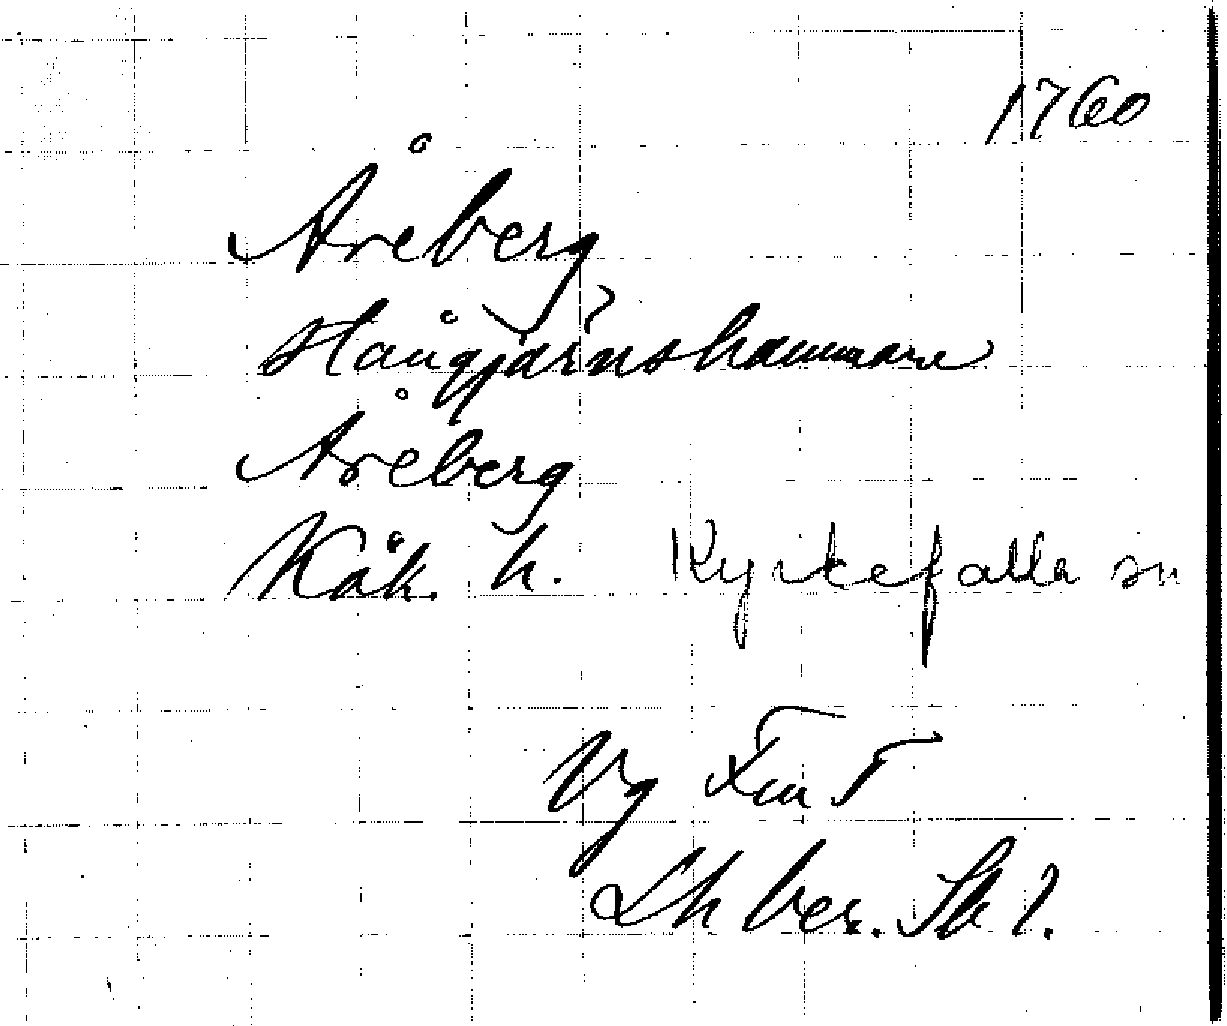 1760
Åreberg
Stångjärnshammare
Åreberg
Kåk. h. Kyrkefalla sn
Vg Fin T
Lh ber. Sk 1.